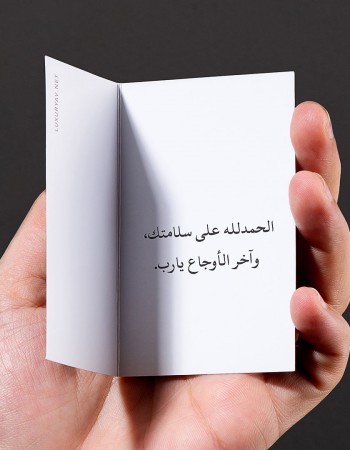 الحمدلله على سلامتك،
وآخر الأوجاع يارب.